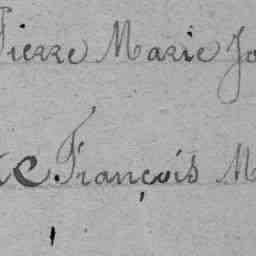 Pierre Marie Jo
François M